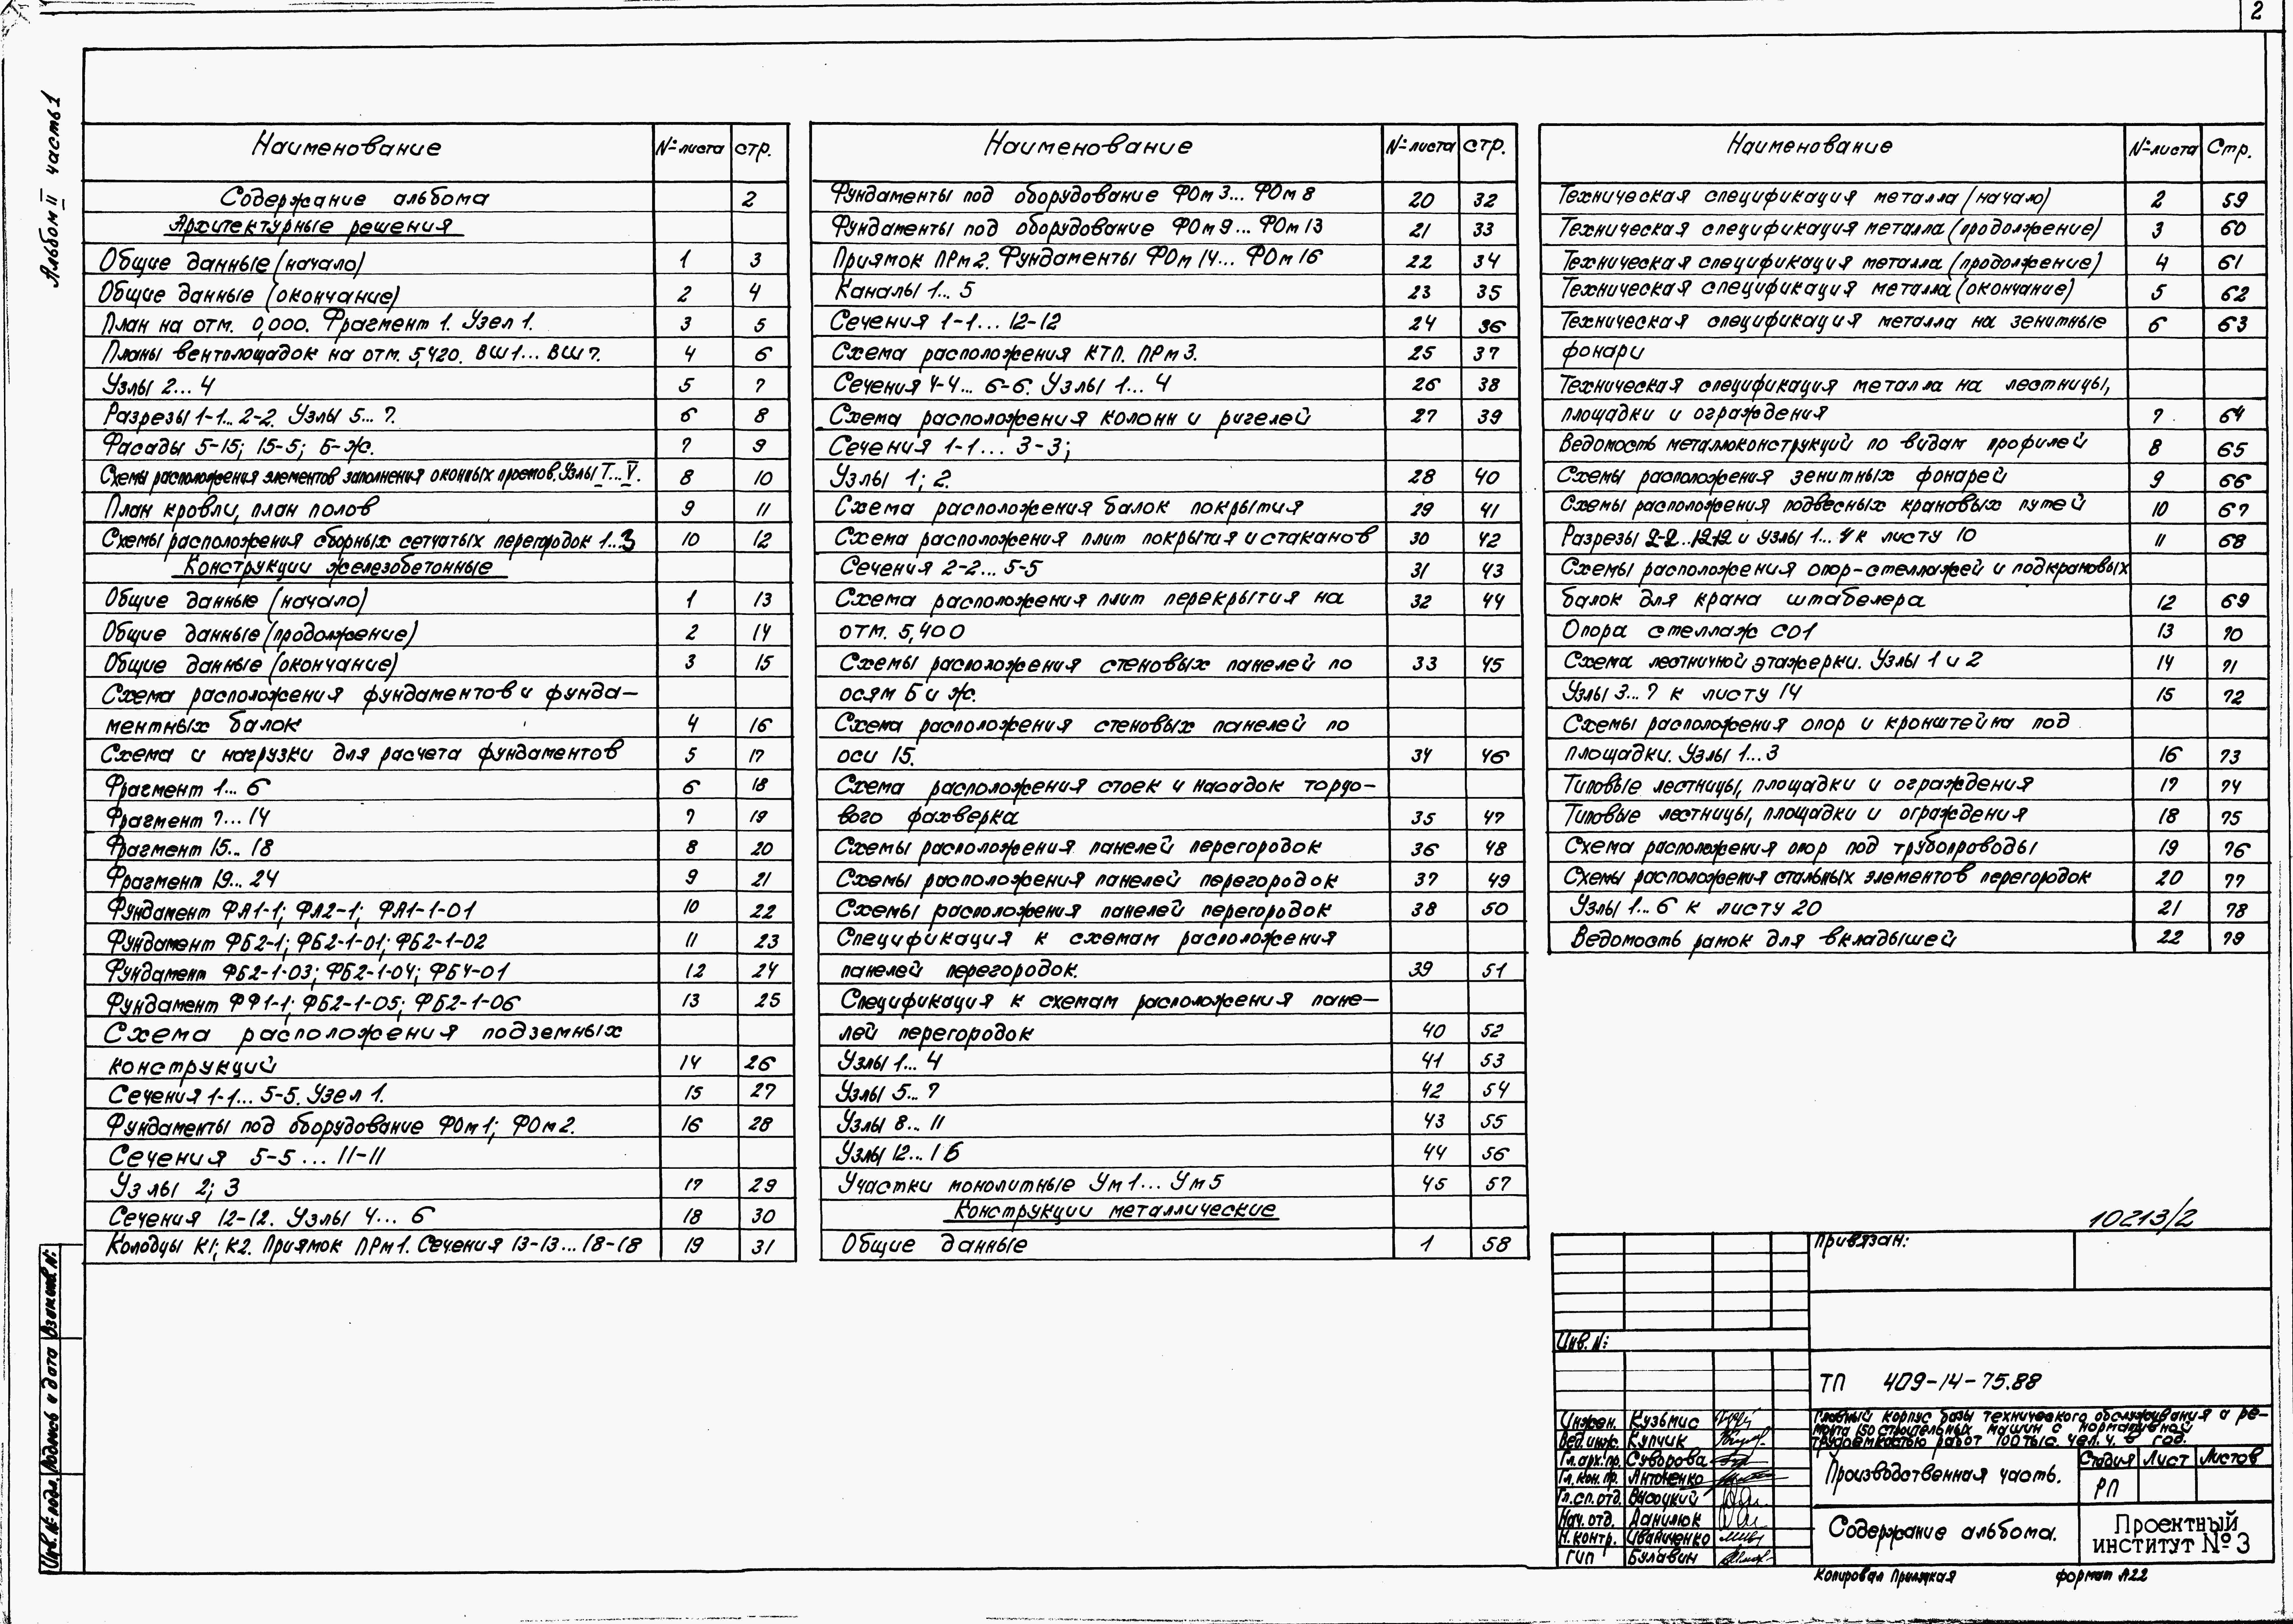 2
Альбом II часть 1
Наименование № листа стр.
Содержание альбома 2
Архитектурные решения
Общие данные (начало) 1 3
Общие данные (окончание) 2 4
План на отм. 0,000. Фрагмент 1. Узел 1. 3 5
Планы вентплощадок на отм. 5,420. ВШ1... ВШ7. 4 6
Узлы 2... 4 5 7
Разрезы 1-1... 2-2. Узлы 5... 7. 6 8
Фасады 5-15; 15-5; Б-Ж. 7 9
Схемы расположения элементов заполнения оконных проемов. Узлы I...V. 8 10
План кровли, план полов 9 11
Схемы расположения сборных сетчатых перегородок 1...3 10 12
Конструкции железобетонные
Общие данные (начало) 1 13
Общие данные (продолжение) 2 14
Общие данные (окончание) 3 15
Схема расположения фундаментов и фунда-
ментных балок 4 16
Схема и нагрузки для расчета фундаментов 5 17
Фрагмент 1... 6 6 18
Фрагмент 7... 14 7 19
Фрагмент 15... 18 8 20
Фрагмент 19... 24 9 21
Фундамент ФА1-1; ФА2-1; ФА1-1-01 10 22
Фундамент ФБ2-1; ФБ2-1-01; ФБ2-1-02 11 23
Фундамент ФБ2-1-03; ФБ2-1-04; ФБ4-01 12 24
Фундамент ФФ1-1; ФБ2-1-05; ФБ2-1-06 13 25
Схема расположения подземных
конструкций 14 26
Сечения 1-1... 5-5. Узел 1. 15 27
Фундаменты под оборудование ФОм1; ФОм2. 16 28
Сечения 5-5... 11-11
Узлы 2; 3 17 29
Сечения 12-12. Узлы 4... 6 18 30
Колодцы К1; К2. Приямок ПРм1. Сечения 13-13... 18-18 19 31
Наименование № листа стр.
Фундаменты под оборудование ФОм3... ФОм8 20 32
Фундаменты под оборудование ФОм9... ФОм13 21 33
Приямок ПРм2. Фундаменты ФОм14... ФОм16 22 34
Каналы 1... 5 23 35
Сечения 1-1... 12-12 24 36
Схема расположения КТП. ПРм3. 25 37
Сечения 4-4... 6-6. Узлы 1... 4 26 38
Схема расположения колонн и ригелей 27 39
Сечения 1-1... 3-3;
Узлы 1; 2. 28 40
Схема расположения балок покрытия 29 41
Схема расположения плит покрытия и стаканов 30 42
Сечения 2-2... 5-5 31 43
Схема расположения плит перекрытия на 32 44
отм. 5,400
Схемы расположения стеновых панелей по 33 45
осям Б и Ж.
Схема расположения стеновых панелей по
оси 15. 34 46
Схема расположения стоек и насадок торцо-
вого фахверка 35 47
Схемы расположения панелей перегородок 36 48
Схемы расположения панелей перегородок 37 49
Схемы расположения панелей перегородок 38 50
Спецификация к схемам расположения
панелей перегородок. 39 51
Спецификация к схемам расположения пане-
лей перегородок 40 52
Узлы 1... 4 41 53
Узлы 5... 7 42 54
Узлы 8... 11 43 55
Узлы 12... 16 44 56
Участки монолитные Ум1... Ум5 45 57
Конструкции металлические
Общие данные 1 58
Наименование № листа Стр.
Техническая спецификация металла (начало) 2 59
Техническая спецификация металла (продолжение) 3 60
Техническая спецификация металла (продолжение) 4 61
Техническая спецификация металла (окончание) 5 62
Техническая спецификация металла на зенитные 6 63
фонари
Техническая спецификация металла на лестницы,
площадки и ограждения 7 64
Ведомость металлоконструкций по видам профилей 8 65
Схемы расположения зенитных фонарей 9 66
Схемы расположения подвесных крановых путей 10 67
Разрезы 2-2...12-12 и узлы 1... 4 к листу 10 11 68
Схемы расположения опор-стеллажей и подкрановых
балок для крана штабелера 12 69
Опора стеллаж СО1 13 70
Схема лестничной этажерки. Узлы 1 и 2 14 71
Узлы 3... 7 к листу 14 15 72
Схемы расположения опор и кронштейна под
площадки. Узлы 1... 3 16 73
Типовые лестницы, площадки и ограждения 17 74
Типовые лестницы, площадки и ограждения 18 75
Схема расположения опор под трубопроводы 19 76
Схемы расположения стальных элементов перегородок 20 77
Узлы 1... 6 к листу 20 21 78
Ведомость рамок для вкладышей 22 79
10213/2
Привязан:
Инв. №:
ТП 409-14-75.88
Главный корпус базы технического обслуживания и ре-
монта 150 строительных машин с нормативной
трудоемкостью работ 100 тыс. чел. ч. в год.
Инжен. Кузьмис
Вед. инж. Купчик
Гл. арх. пр. Суворова
Гл. кон. пр. Антоненко
Гл. сп. отд. Высоцкий
Нач. отд. Данилюк
Н. контр. Иваниченко
ГИП Булавин
Производственная часть.
Стадия Лист Листов
РП
Содержание альбома.
Проектный
институт № 3
Копировал
формат А22
Инв. № подл. Подпись и дата Взам. инв. №: